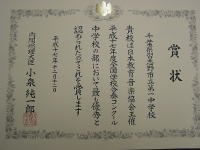 賞状
千葉県習志野市立第一中学校
貴校は日本教育音楽協会主催
平成十七年度全国学校合奏コンクール
中学校の部において最も優秀と
認められたのでこれを賞します
平成十七年十二月十二日
内閣総理大臣 小泉純一郎